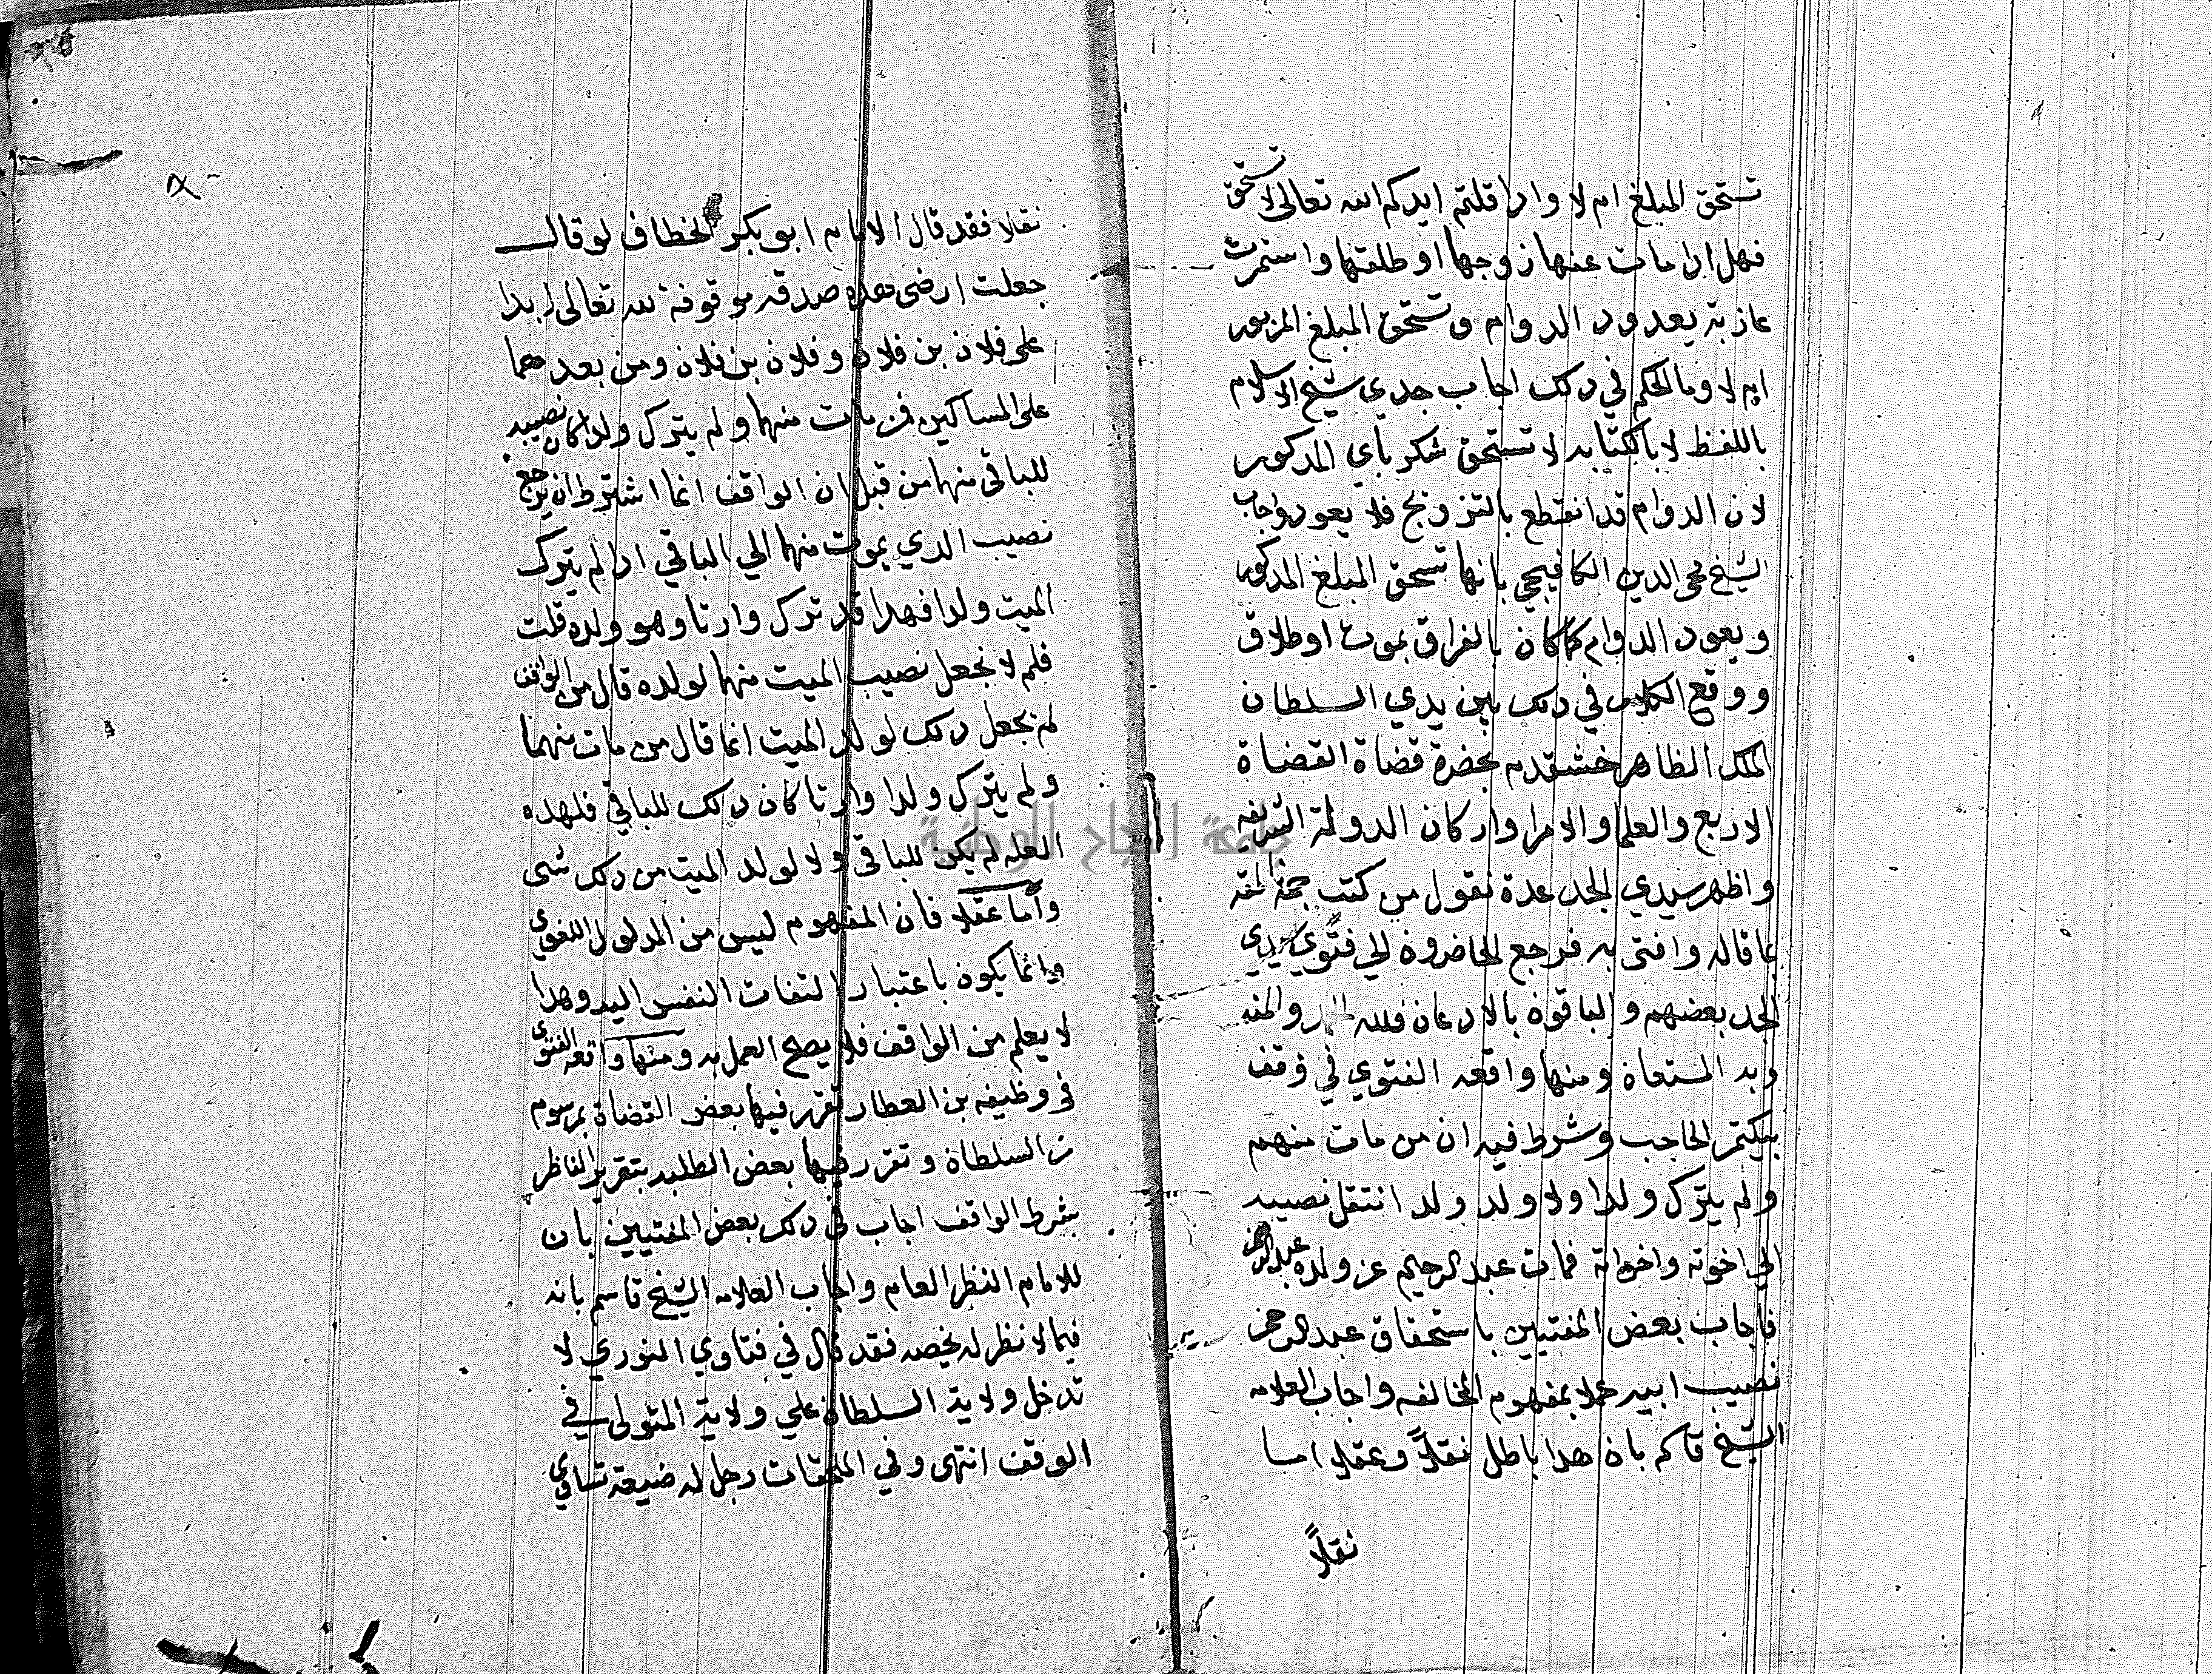 تستحق المبلغ ام لا واذا قلتم ايدكم الله تعالى لا تستحق
فهل اذا مات عنها زوجها او طلقها واستمرت
عازبة يعود الدوام وتستحق المبلغ المزبور
ام لا وما الحكم في ذلك اجاب جدي شيخ الاسلام
باللفظ لا بالكتابه لا تستحق شكرباي المذكور
لان الدوام قد انقطع بالتزويج فلا يعود واجاب
الشيخ محى الدين الكافيجي بانها تستحق المبلغ المذكور
ويعود الدوام كما كان بالفراق بموت او طلاق
ووقع الكلام في ذلك بين يدي السلطان
الملك الظاهر خشقدم بحضرة قضاة القضاة
الاربع والعلما والامرا واركان الدولة الشريفه
واظهر سيدي الجد عدة نقول من كتب
بما قاله وافتى به فرجع الحاضرون الي فتوي سيدي
الجد بعضهم والباقون بالاذعان فلله الحمد والمنه
وبه المستعان ومنها واقعه الفتوي في وقف
بيكتمر الحاجب وشرط فيه ان من مات منهم
ولم يترك ولدا ولا ولد ولد انتقل نصيبه
الي اخوته واخواته فمات عبد الرحيم عن ولده عبد الرحمن
فاجاب بعض المفتيين باستحقاق عبد الرحمن
نصيب ابيه عملا بمفهوم المخالفه واجاب العلامه
الشيخ قاسم بان هذا باطل نقلاً وعقلا اما
نقلاً
نقلا فقد قال الامام ابو بكر الخصاف لو قال
جعلت ارضى هذه صدقه موقوفة لله تعالى ابدا
على فلان بن فلان وفلان بن فلان ومن بعدهما
على المساكين فمن مات منهما ولم يترك ولدا كان نصيبه
للباقى منهما من قبل ان الواقف انما اشترط ان يرجع
نصيب الذي يموت منهما الي الباقي اذا لم يترك
الميت ولدا فهذا قد ترك وارثا وهو ولده قلت
فلم لا نجعل نصيب الميت منهما لولده قال من الواقف
لم نجعل ذلك لولد الميت انما قال من مات منهما
ولم يترك ولدا وارثا كان ذلك للباقي فلهذه
العله لم يكن للباقى ولا لولد الميت من ذلك شى
واما عقلا فان المفهوم ليس من المدلول اللغوي
وانما يكون باعتبار التفات النفس اليه وهذا
لا يعلم من الواقف فلا يصح العمل به ومنها واقعه الفتوي
فى وظيفه بن العطار تقرر فيها بعض القضاة بمرسوم
من السلطان وتقرر فيها بعض الطلبه بتقرير الناظر
بشرط الواقف اجاب فى ذلك بعض المفتيين بان
للامام النظر العام واجاب العلامه الشيخ قاسم بانه
فيما لا نظر له يخصه فقد قال في فتاوي النوري لا
تدخل ولاية السلطان علي ولاية المتولى في
الوقف انتهى وفي الملتقات رجل له ضيعة تساوي
جامعة النجاح الوطنية